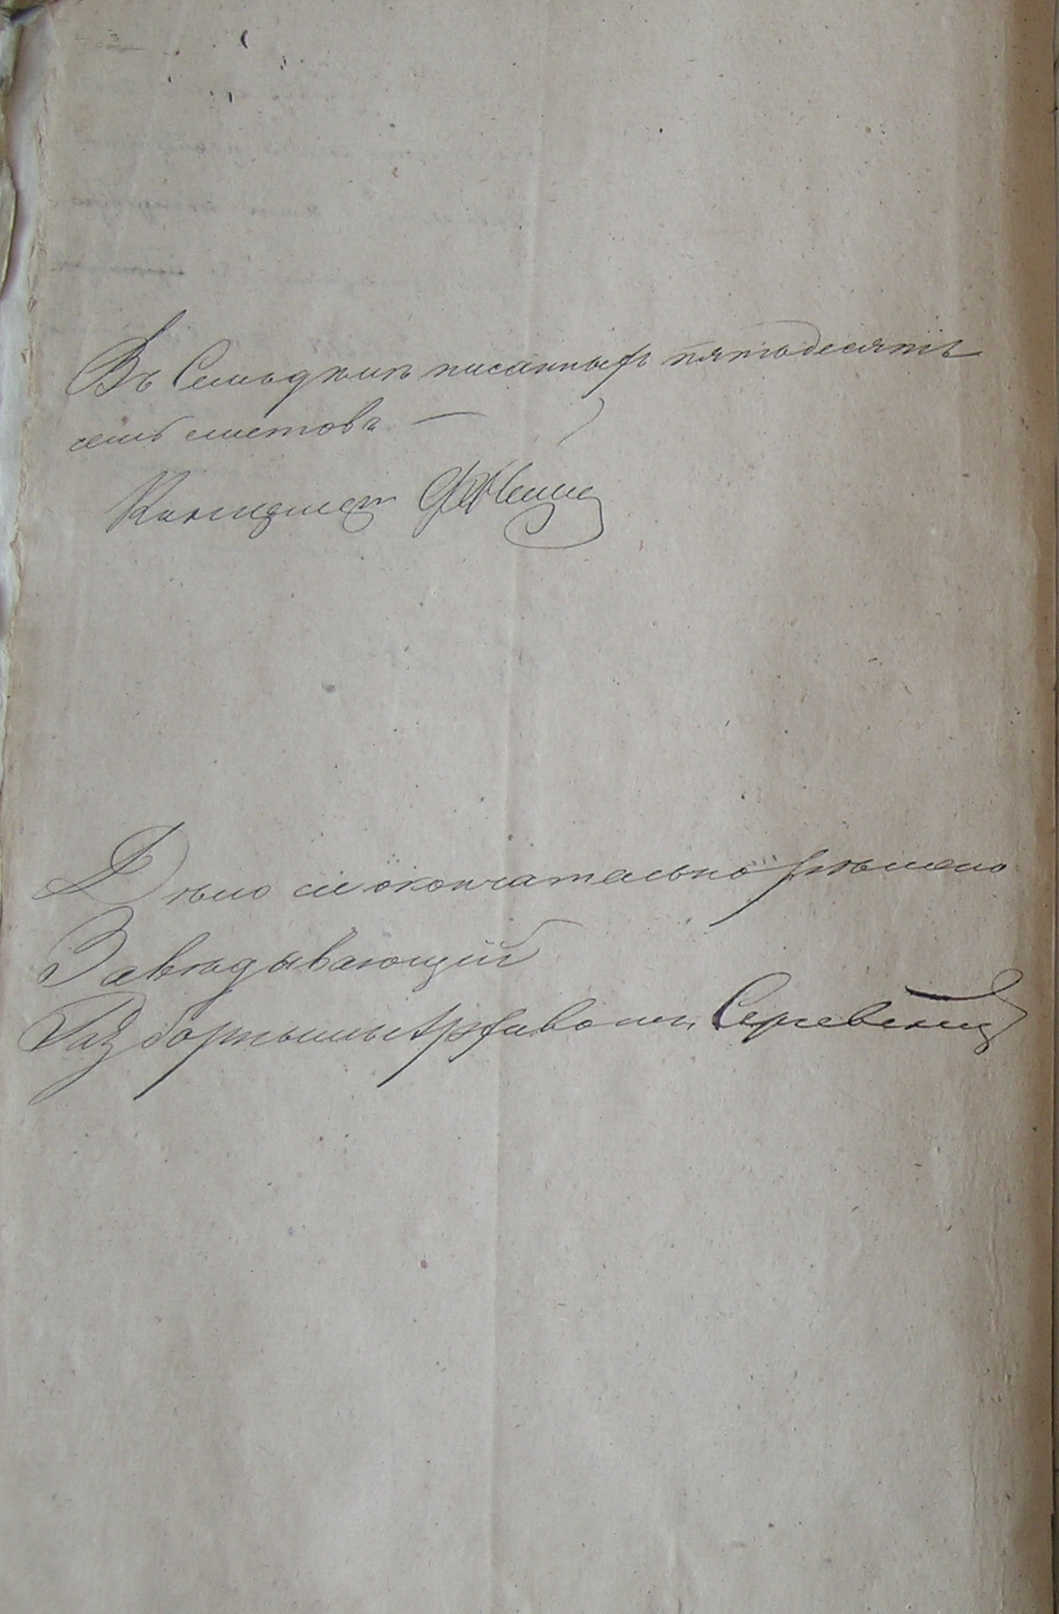 Въ Семъ дѣлѣ писанныхъ пятьдесятъ
семь листовъ
Канцелист
Дѣло сіе окончательно рѣшено
Завѣдывающій
Разборнымъ Архивомъ